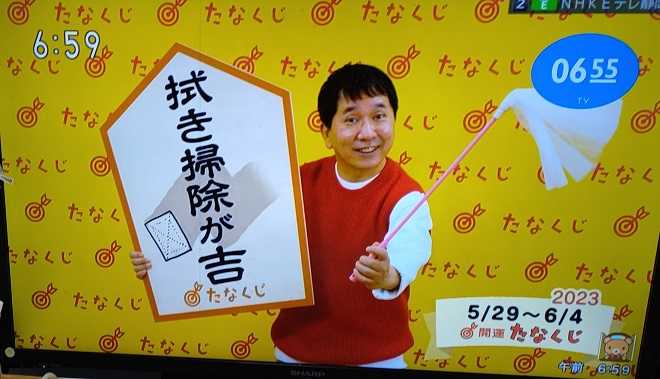 6:59
2 E NHKEテレ静岡
0655
TV
拭き掃除が吉
たなくじ
2023
5/29〜6/4
開運たなくじ
午前 6:59
SHARP